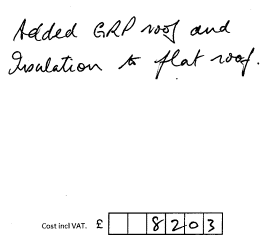 Added GRP roof and
Insulation to flat roof.
Cost incl VAT. £ 8203